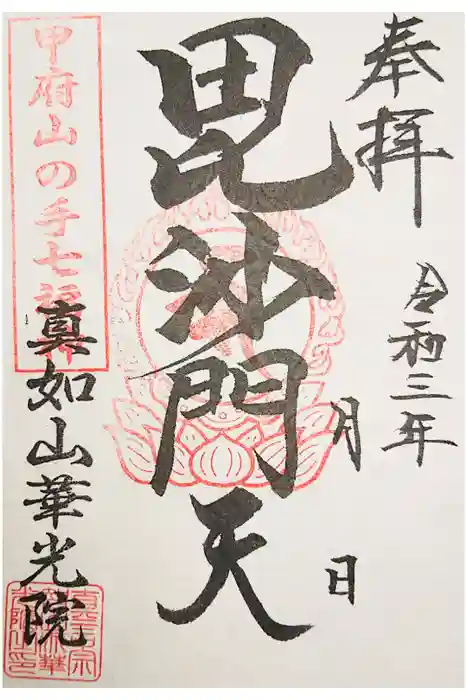 奉拝
令和三年
月
日
毘沙門天
甲府山の手七福
真如山華光院